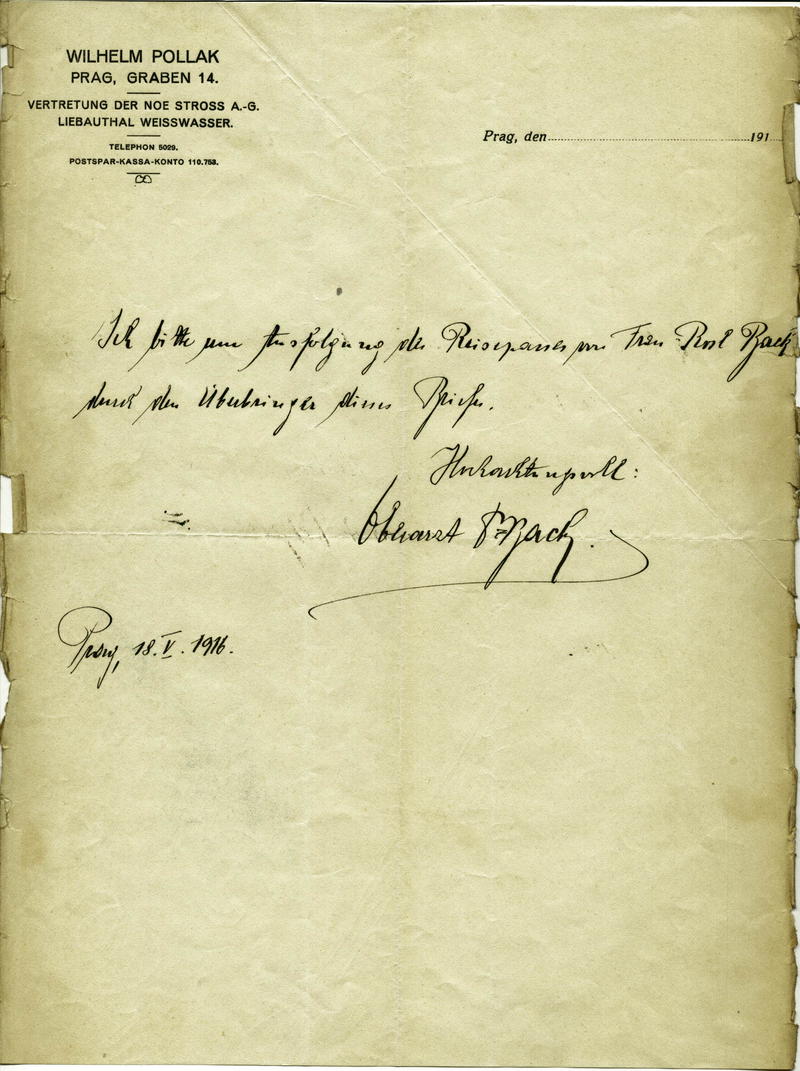 WILHELM POLLAK
PRAG, GRABEN 14.
VERTRETUNG DER NOE STROSS A.-G.
LIEBAUTHAL WEISSWASSER.
TELEPHON 5029.
POSTSPAR-KASSA-KONTO 110.753.
Prag, den 191
Ich bitte um Ausfolgung des Reisepasses von Frau
durch den Überbringer dieses Briefes.
Hochachtungsvoll:
Oberarzt
Prag, 18. V. 1916.